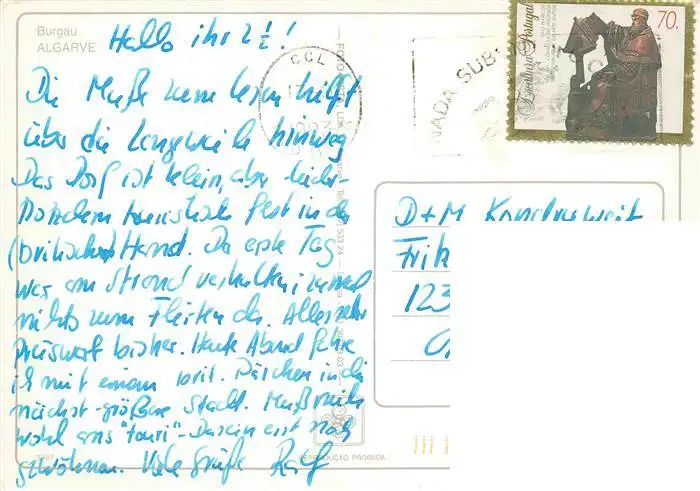 Burgau
ALGARVE
Hallo ihr 2 ½!
Die Muße zum Lesen hilft
über die Langeweile hinweg
Das Dorf ist klein, aber leider
trotzdem touristisch fest in der
(britischen) Hand. Der erste Tag
war am Strand verhalten, zumal
nichts zum Fleiten da. Alles sehr
preiswert bisher. Heute Abend fahre
ich mit einem brit. Pärchen in die
nächst-größere Stadt. Muß mich
wohl ans "Touri"-Dasein erst noch
gewöhnen. Viele Grüße Ralf
CCL
NADA SUB
70.
Portugal
D+M Kondruweit
Frit
123
REPRODUÇÃO PROIBIDA